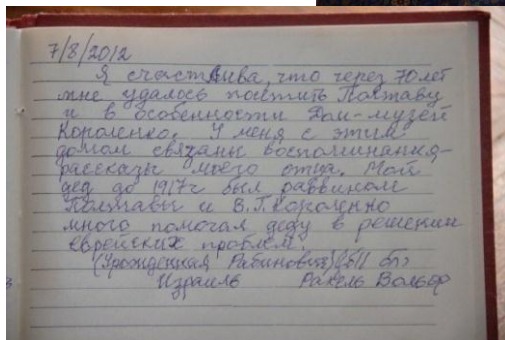 7/8/2012
Я счастлива, что через 70 лет
мне удалось посетить Полтаву
и в особенности Дом-музей
Короленко. У меня с этим
домом связаны воспоминания-
рассказы моего отца. Мой
дед до 1917г был раввином
Полтавы и В.Г.Короленко
много помогал деду в решении
еврейских проблем.
(Урожденная Рабинович)
Израиль Рахель Вольф